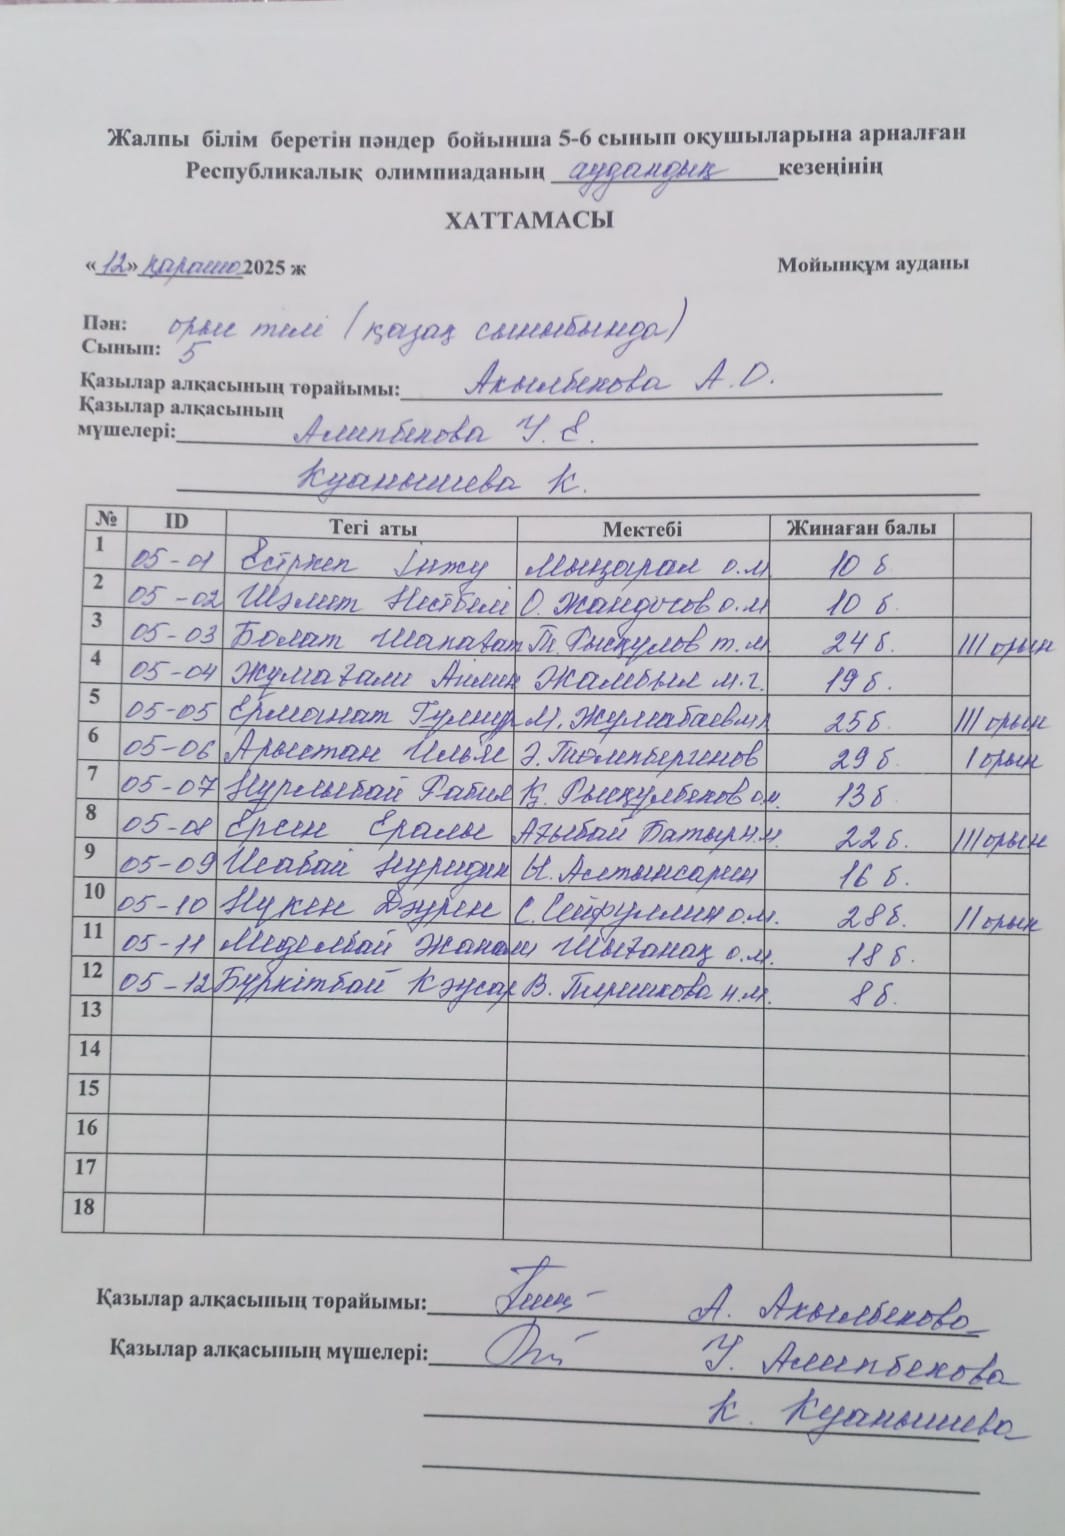 Жалпы білім беретін пәндер бойынша 5-6 сынып оқушыларына арналған
Республикалық олимпиаданың аудандық кезеңінің
ХАТТАМАСЫ
«12» қараша 2025 ж Мойынқұм ауданы
Пән: орыс тілі (қазақ сыныбында)
Сынып: 5
Қазылар алқасының төрайымы: Акылбекова А.О.
Қазылар алқасының
мүшелері: Алипбекова У.Е.
Куанышева К.
№ ID Тегі аты Мектебі Жинаған балы
1 05-01 Естркеп Інжу Мыңарал о.м 10 б.
2 05-02 Шәмит Несібелі О. Жандосов о.м 10 б.
3 05-03 Болат Шапағат Т. Рысқулов т.м 24 б. III орын
4 05-04 Жұмағали Айлин Жамбыл м.г. 19 б.
5 05-05 Ерманат Гулнур М. Жумабаев 25 б III орын
6 05-06 Арыстан Ильяс Ә. Төлепбергенов 29 б. I орын
7 05-07 Нұрлыбай Рабия Қ. Рысқулбеков о.м. 13 б
8 05-08 Ерсен Ералы Ағыбай Батыр н.м. 22 б. III орын
9 05-09 Исабай Нуридин Ы. Алтынсарин 16 б.
10 05-10 Нүкен Дәурен С. Сейфуллин о.м. 28 б. II орын
11 05-11 Медеубай Шығанақ о.м. 18 б.
12 05-12 Бүркітбай Кәусар В. Терешкова н.м. 8 б.
13
14
15
16
17
18
Қазылар алқасының төрайымы: А. Акылбекова
Қазылар алқасының мүшелері: У. Алипбекова
К. Куанышева